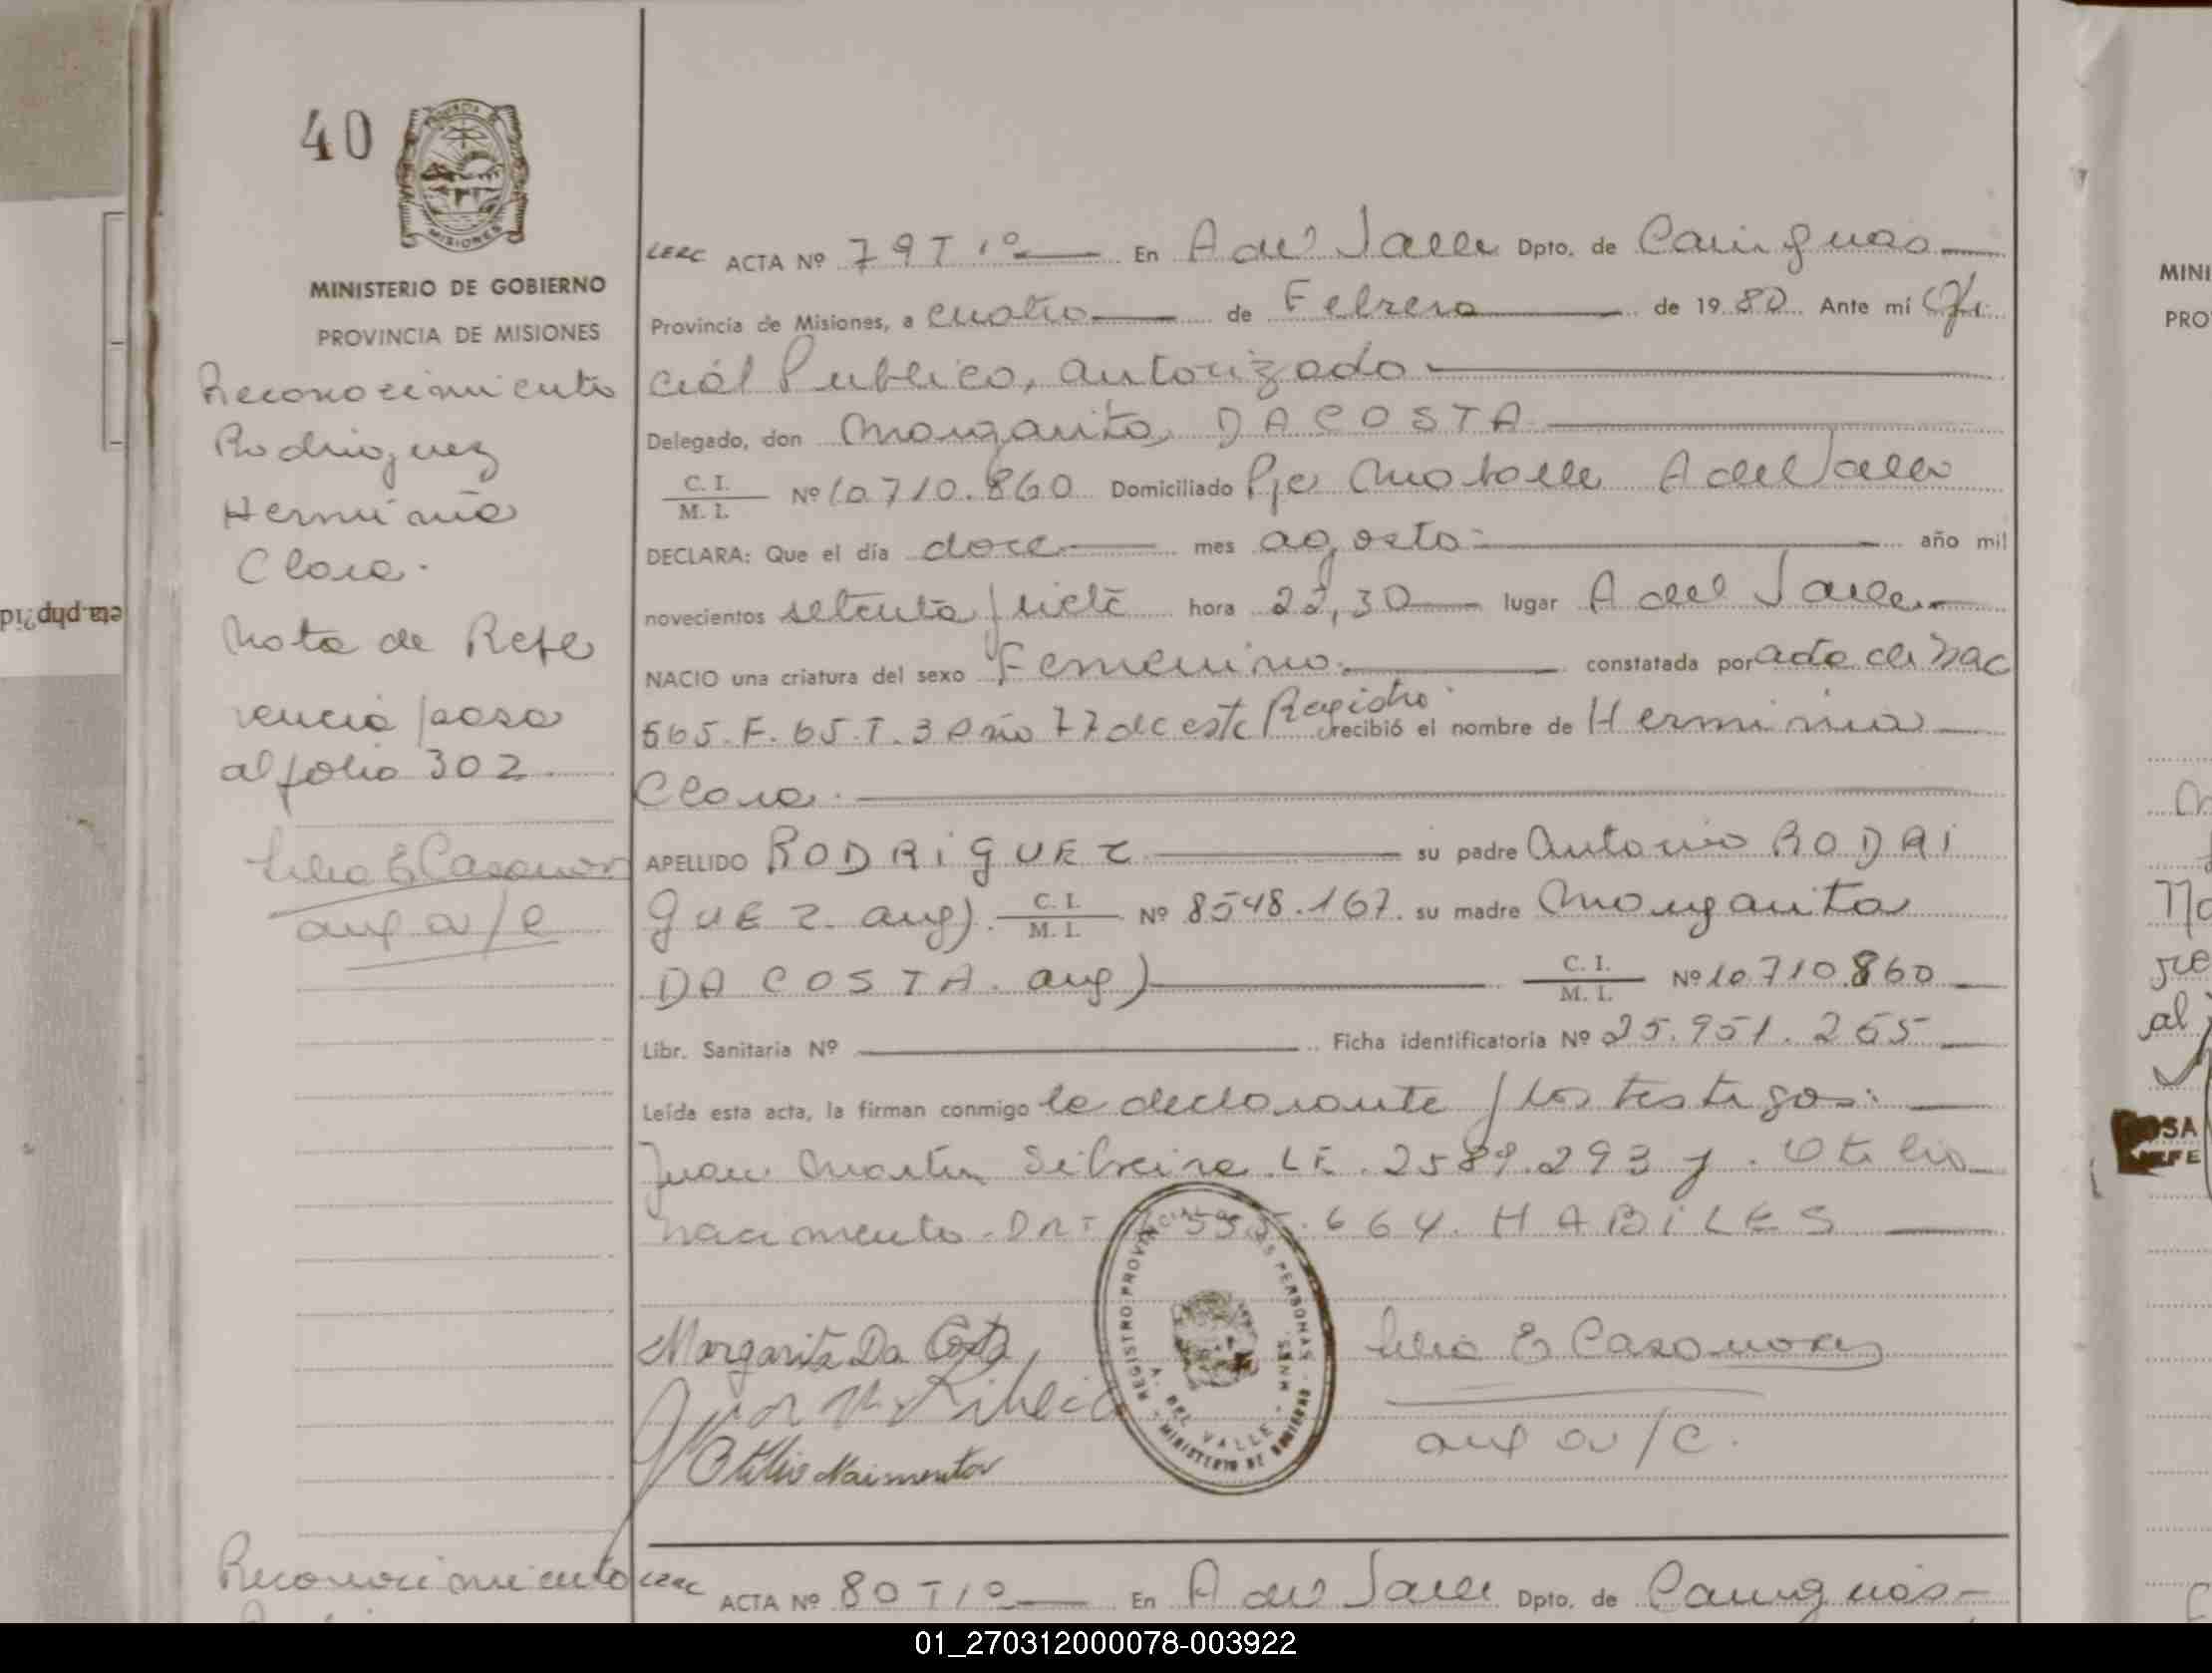 40
MISIONES
MINISTERIO DE GOBIERNO
PROVINCIA DE MISIONES
Reconocimiento
Rodriguez
Herminia
Clara.
Nota de Refe
rencia pasa
al folio 302
Lilia E Casanova
aux a/c
LERC ACTA Nº 79 T 1º En A del Valle Dpto. de Cainguas
Provincia de Misiones, a cuatro de Febrero de 1980 Ante mí Ofi
cial Publico, autorizado
Delegado, don Margarita DA COSTA
C. I. / M. I. Nº 10.710.860 Domiciliado Pje Mobolle A del Valle
DECLARA: Que el día doce mes agosto año mil
novecientos setenta y siete hora 22,30 lugar A del Valle
NACIO una criatura del sexo Femenino. constatada por acta de Nac
565. F. 65. T. 3 Año 77 de este Registro. recibió el nombre de Herminia
Clara.
APELLIDO RODRIGUEZ su padre Antonio RODRI
GUEZ. arg). C. I. / M. I. Nº 8548.167. su madre Margarita
DA COSTA. arg) C. I. / M. I. Nº 10.710.860
Libr. Sanitaria Nº Ficha identificatoria Nº 25.951.265
Leída esta acta, la firman conmigo la declarante y los testigos:
Juan Martin Silveira LE. 2589.293 y. Otilio
Nacimento. DNI 664. HABILES
Margarita Da Costa
Otilio Naimentor
REGISTRO PROVINCIAL DE LAS PERSONAS
A. DEL VALLE - MNES.
MINISTERIO DE GOBIERNO
Lilia E Casanova
aux a/c.
Reconocimiento
LERC ACTA Nº 80 T 1º En A del Valle Dpto. de Cainguas
MINI
PRO
No
re
al
OSA
EFE
eta.php?id
01_270312000078-003922